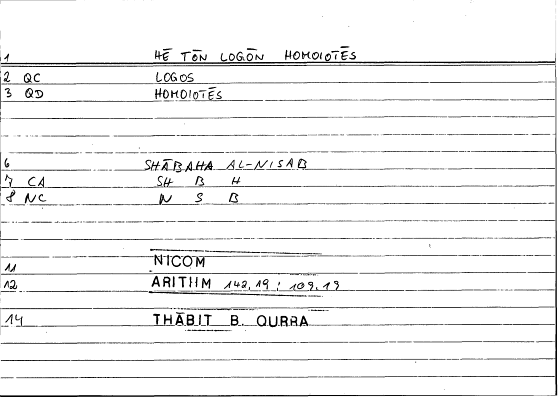 1 HĒ TŌN LOGŌN HOMOIOTĒS
2 QC LOGOS
3 QD HOMOIOTĒS
6 SHĀBAHA AL-NISAB
7 CA SH B H
8 NC N S B
11 NICOM
12 ARITHM 142,19 ; 109,19
14 THĀBIT B. QURRA